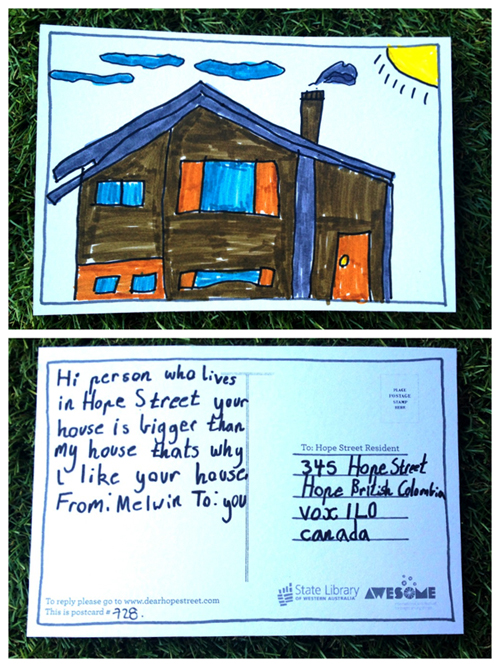 Hi person who lives
in Hope Street your
house is bigger than
my house thats why
i like your house
From: Melwin To: you
PLACE
POSTAGE
STAMP
HERE
To: Hope Street Resident
345 Hope Street
Hope British Colombia
VOX 1L0
canada
To reply please go to www.dearhopestreet.com
This is postcard # 728.
State Library
OF WESTERN AUSTRALIA
AWESOME